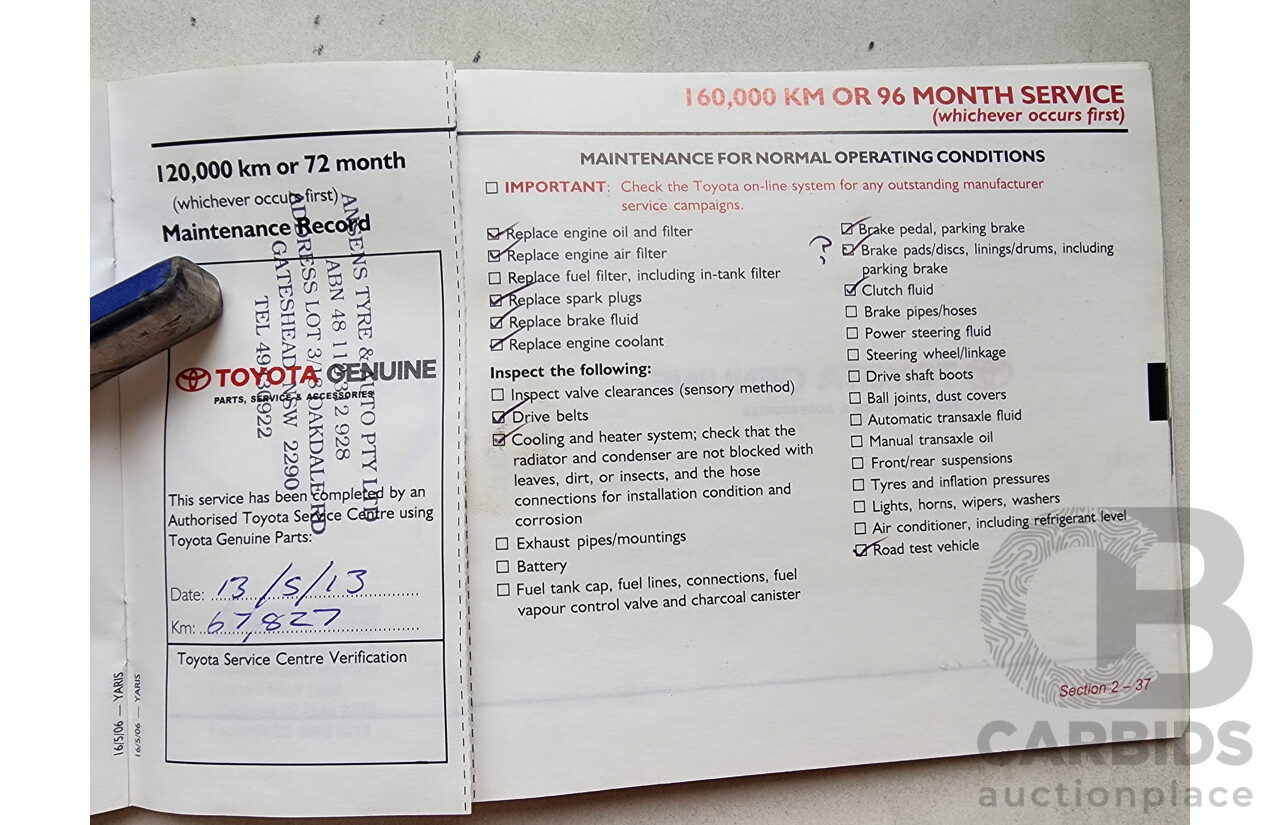 120,000 km or 72 month
(whichever occurs first)
Maintenance Record
ANSENS TYRE & AUTO PTY LTD
ABN 48
928
ADDRESS LOT OAKDALE RD
GATESHEAD NSW 2290
TEL
TOYOTA GENUINE
PARTS, SERVICE & ACCESSORIES
This service has been completed by an
Authorised Toyota Service Centre using
Toyota Genuine Parts:
Date: 13/5/13
Km: 67,827
Toyota Service Centre Verification
16/5/06 — YARIS
16/5/06 — YARIS
160,000 KM OR 96 MONTH SERVICE
(whichever occurs first)
MAINTENANCE FOR NORMAL OPERATING CONDITIONS
IMPORTANT: Check the Toyota on-line system for any outstanding manufacturer
service campaigns.
Replace engine oil and filter
Replace engine air filter
Replace fuel filter, including in-tank filter
Replace spark plugs
Replace brake fluid
Replace engine coolant
Inspect the following:
Inspect valve clearances (sensory method)
Drive belts
Cooling and heater system; check that the
radiator and condenser are not blocked with
leaves, dirt, or insects, and the hose
connections for installation condition and
corrosion
Exhaust pipes/mountings
Battery
Fuel tank cap, fuel lines, connections, fuel
vapour control valve and charcoal canister
Brake pedal, parking brake
? Brake pads/discs, linings/drums, including
parking brake
Clutch fluid
Brake pipes/hoses
Power steering fluid
Steering wheel/linkage
Drive shaft boots
Ball joints, dust covers
Automatic transaxle fluid
Manual transaxle oil
Front/rear suspensions
Tyres and inflation pressures
Lights, horns, wipers, washers
Air conditioner, including refrigerant level
Road test vehicle
Section 2 – 37
CB
CARBIDS
auctionplace